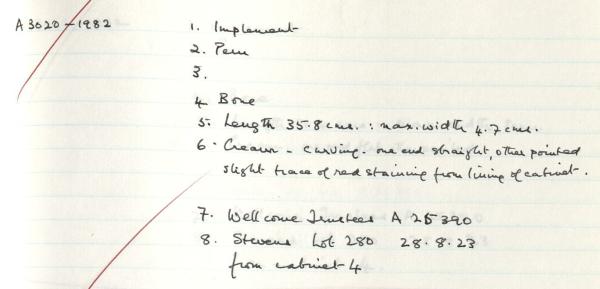 A3020-1982
1. Implement
2. Peru
3.
4. Bone
5. Length 35.8 cms. : max. width 4.7 cms.
6. Cream - curving. one end straight, other pointed
slight trace of red staining from lining of cabinet.
7. Wellcome Trustees A 25390
8. Stevens Lot 280 28.8.23
from cabinet 4